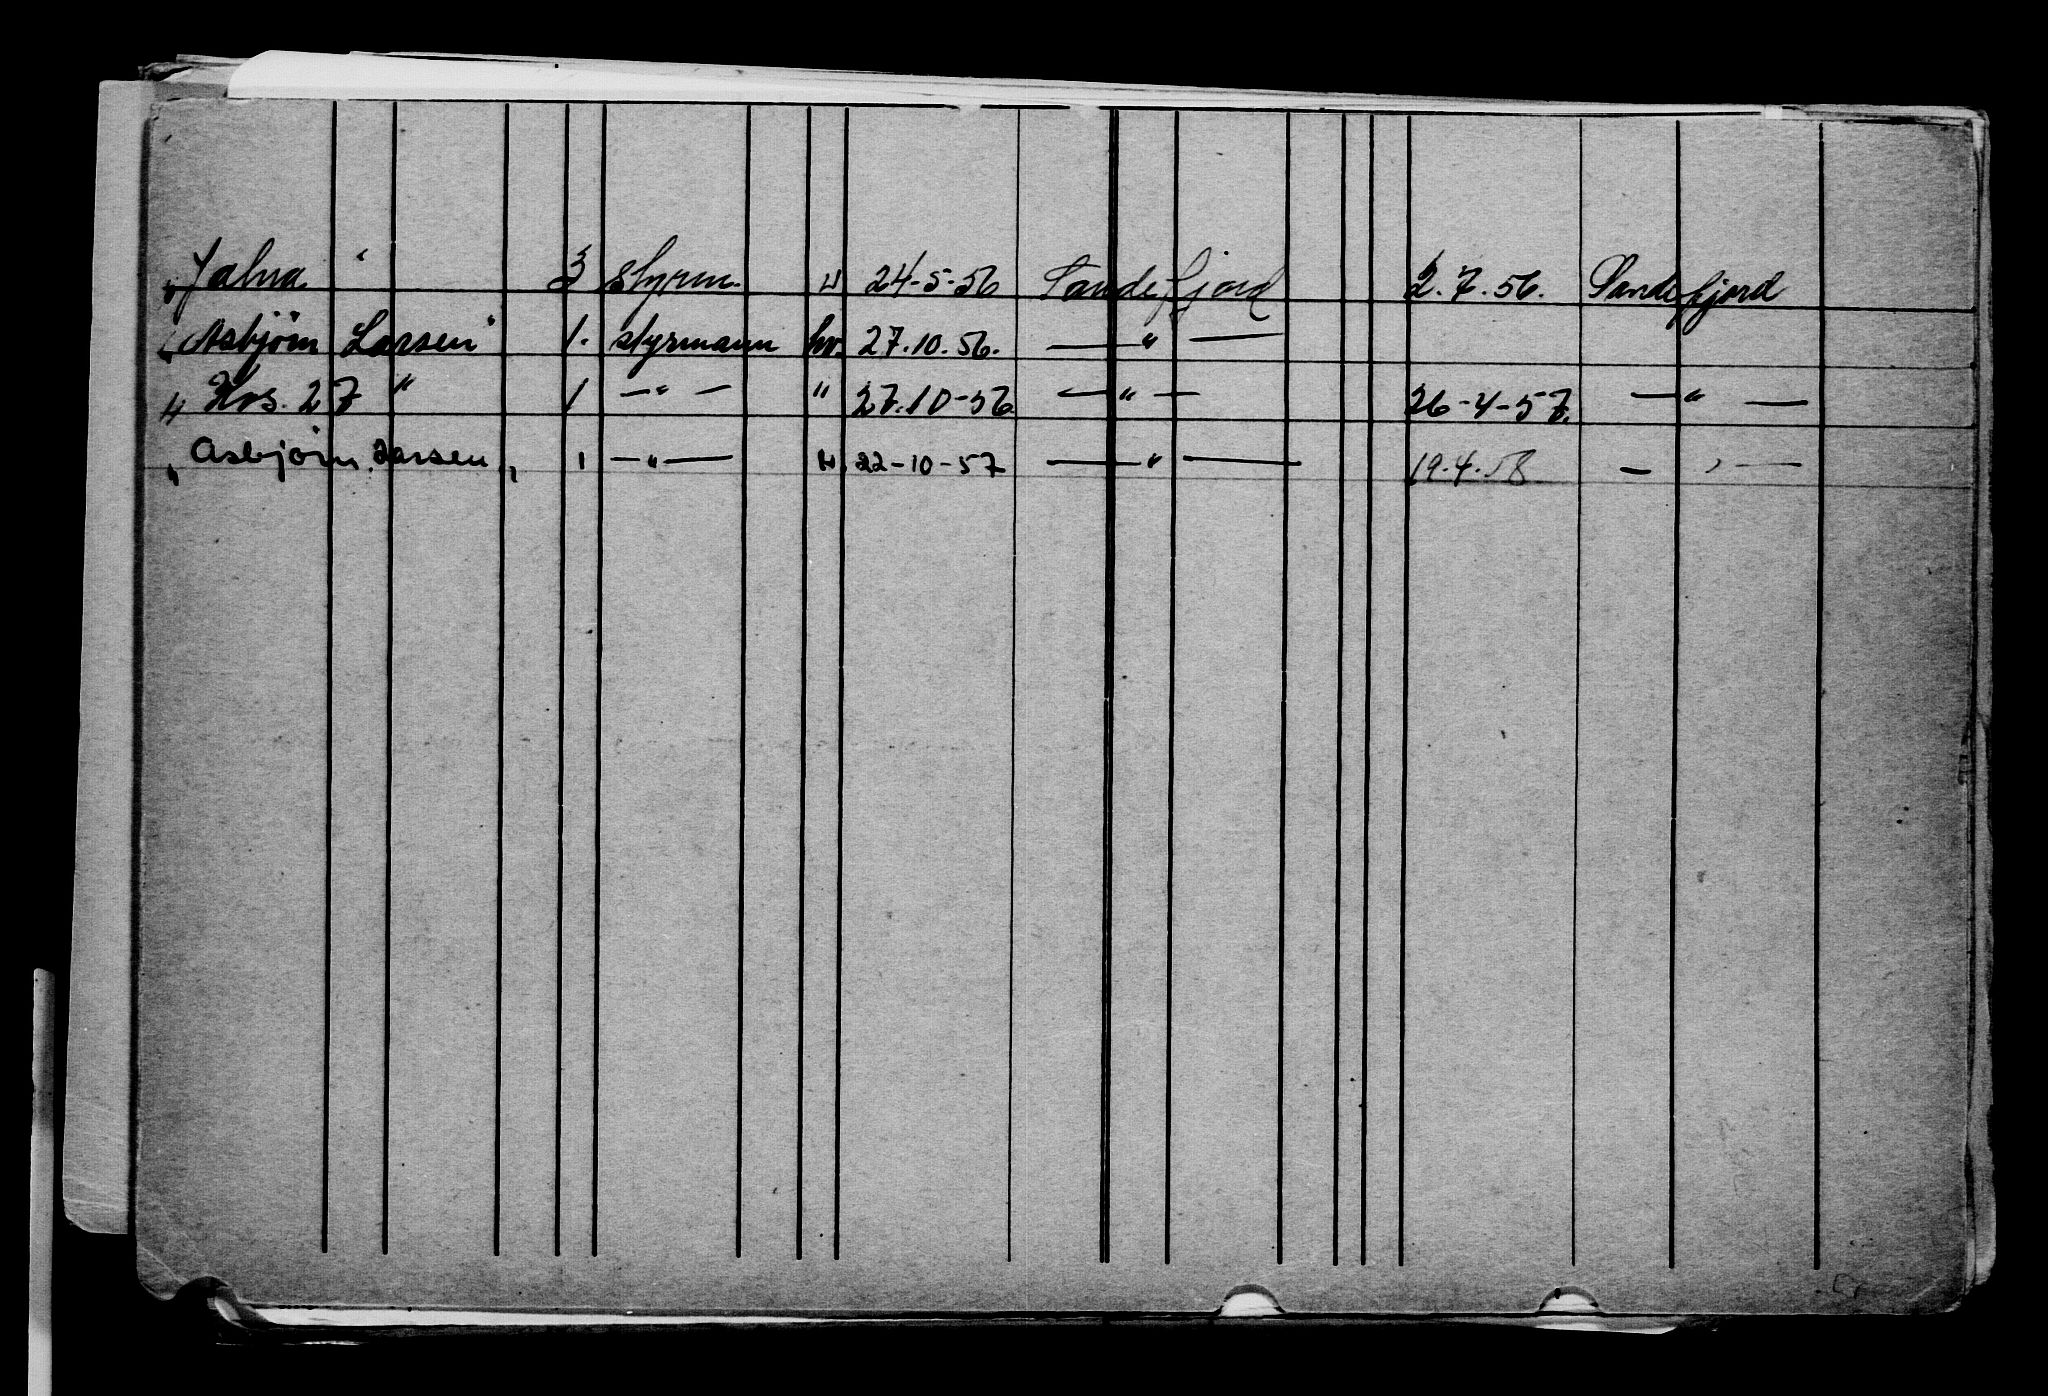 " Jalna " 3 styrm. " 24-5-56 Sandefjord 2.7.56. Sandefjord
" Asbjørn Larsen" 1. styrmann hv. 27.10.56. — " —
" Hvs. 27 " 1 — " — " 27.10-56 — " — 26-4-57. — " —
" Asbjørn Larsen " 1 — " — " 22-10-57 — " — 19.4.58 — " —